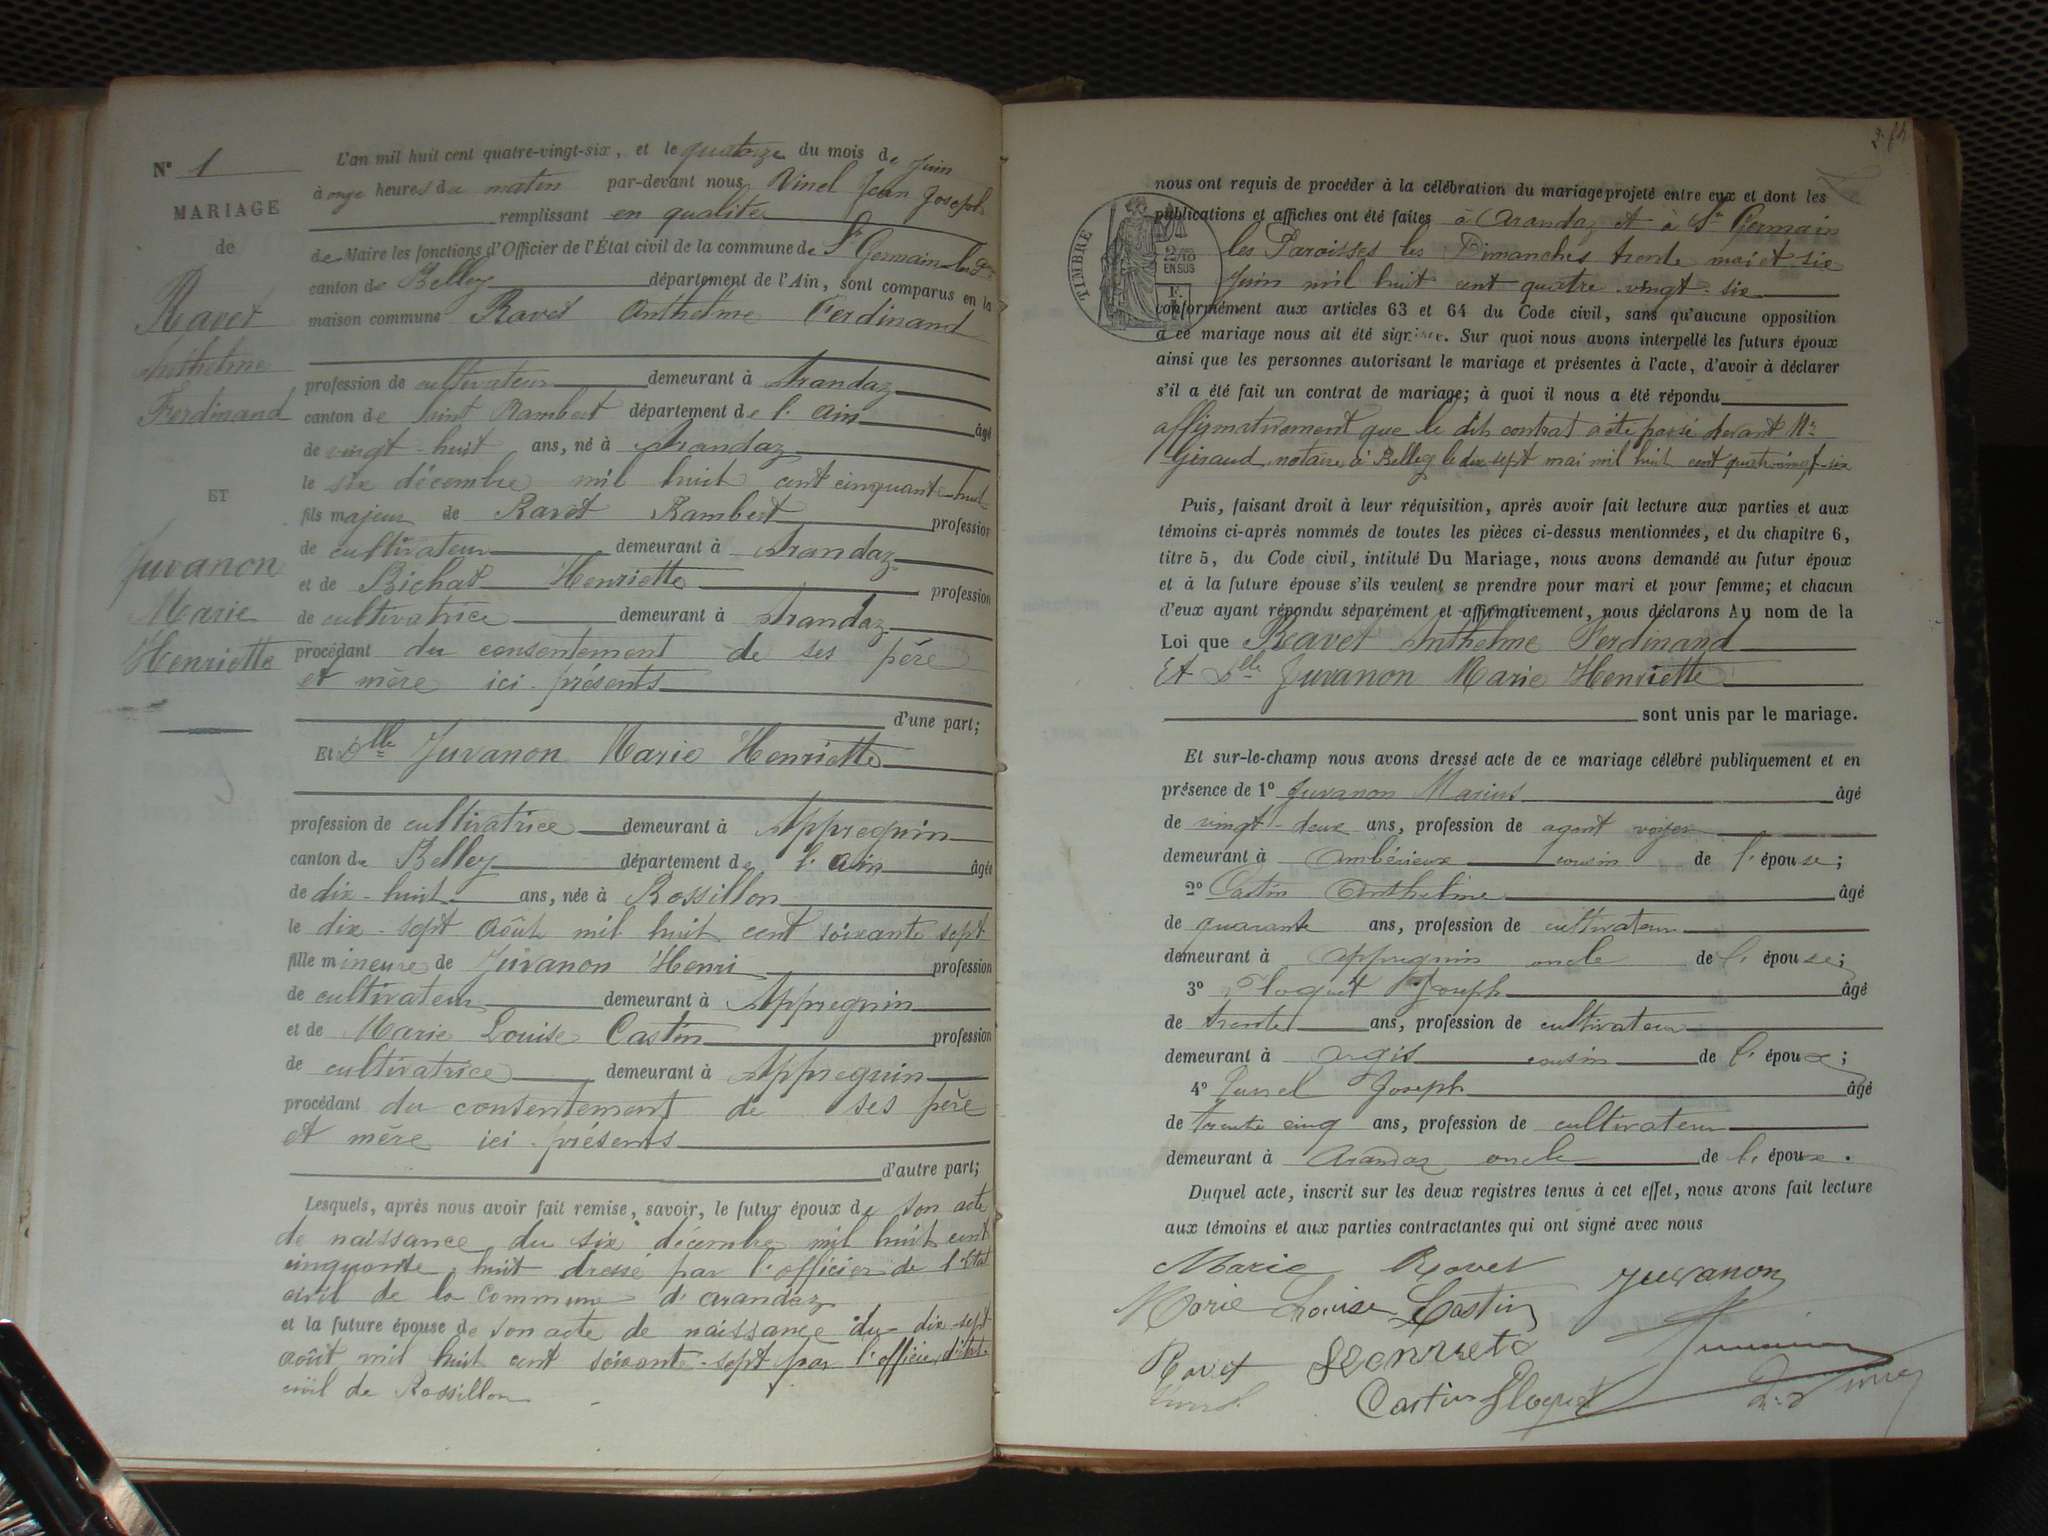 N° 1
MARIAGE
de
Ravet
Anthelme
Ferdinand
ET
Juvanon
Marie
Henriette
L'an mil huit cent quatre-vingt-six, et le quatorze du mois de Juin
à onze heures du matin par-devant nous Vinel Jean Joseph
remplissant en qualité
de Maire les fonctions d'Officier de l'État civil de la commune de St Germain-les-P.
canton de Belley département de l'Ain, sont comparus en la
maison commune Ravet Anthelme Ferdinand
profession de cultivateur demeurant à Arandaz
canton de Saint Rambert département de l'Ain âgé
de vingt-huit ans, né à Arandaz
le six décembre mil huit cent cinquante-huit
fils majeur de Ravet Rambert profession
de cultivateur demeurant à Arandaz
et de Bichat Henriette profession
de cultivatrice demeurant à Arandaz
procédant du consentement de ses père
et mère ici présents
d'une part;
Et Dlle Juvanon Marie Henriette
profession de cultivatrice demeurant à Appregnin
canton de Belley département de l'Ain âgée
de dix-huit ans, née à Rossillon
le dix-sept Août mil huit cent soixante sept
fille mineure de Juvanon Henri profession
de cultivateur demeurant à Appregnin
et de Marie Louise Castin profession
de cultivatrice demeurant à Appregnin
procédant du consentement de ses père
et mère ici présents
d'autre part;
Lesquels, après nous avoir fait remise, savoir, le futur époux de son acte
de naissance du six décembre mil huit cent
cinquante huit dressé par l'officier de l'Etat
civil de la commune d'Arandaz
et la future épouse de son acte de naissance du dix-sept
août mil huit cent soixante-sept par l'officier d'état
civil de Rossillon
nous ont requis de procéder à la célébration du mariage projeté entre eux et dont les
publications et affiches ont été faites à Arandaz et à St Germain
les Paroisses les Dimanches trente mai et six
Juin mil huit cent quatre-vingt-six
conformément aux articles 63 et 64 du Code civil, sans qu'aucune opposition
à ce mariage nous ait été signifiée. Sur quoi nous avons interpellé les futurs époux
ainsi que les personnes autorisant le mariage et présentes à l'acte, d'avoir à déclarer
s'il a été fait un contrat de mariage; à quoi il nous a été répondu
affirmativement que le dit contrat a été passé devant Mr
Giraud notaire à Belley le dix sept mai mil huit cent quatrevingt-six
TIMBRE
2/10
EN SUS
Puis, faisant droit à leur réquisition, après avoir fait lecture aux parties et aux
témoins ci-après nommés de toutes les pièces ci-dessus mentionnées, et du chapitre 6,
titre 5, du Code civil, intitulé Du Mariage, nous avons demandé au futur époux
et à la future épouse s'ils veulent se prendre pour mari et pour femme; et chacun
d'eux ayant répondu séparément et affirmativement, nous déclarons Au nom de la
Loi que Ravet Anthelme Ferdinand
Et Dlle Juvanon Marie Henriette
sont unis par le mariage.
Et sur-le-champ nous avons dressé acte de ce mariage célébré publiquement et en
présence de 1° Juvanon Marius âgé
de vingt-deux ans, profession de agent voyer
demeurant à Ambérieux cousin de l'épouse;
2° Castin Anthelme âgé
de quarante ans, profession de cultivateur
demeurant à Appregnin oncle de l'épouse;
3° Floquet Joseph âgé
de trente ans, profession de cultivateur
demeurant à Argis cousin de l'époux;
4° Joseph âgé
de trente cinq ans, profession de cultivateur
demeurant à Arandaz oncle de l'époux.
Duquel acte, inscrit sur les deux registres tenus à cet effet, nous avons fait lecture
aux témoins et aux parties contractantes qui ont signé avec nous
Marie Ravet Juvanon
Marie Louise Castin
Ravet
Castin Floquet